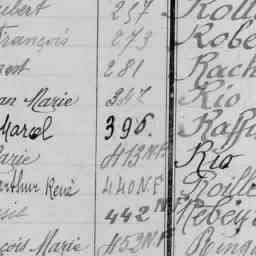 ubert 257 Roll
François 273 Robe
281 Rach
an Marie 347 Rio
Marcel 396. Raffi
Marie 413 N.F. Rio
Arthur René 440 N.F. Roille
442 N Rebey
çois Marie 453 N.F.